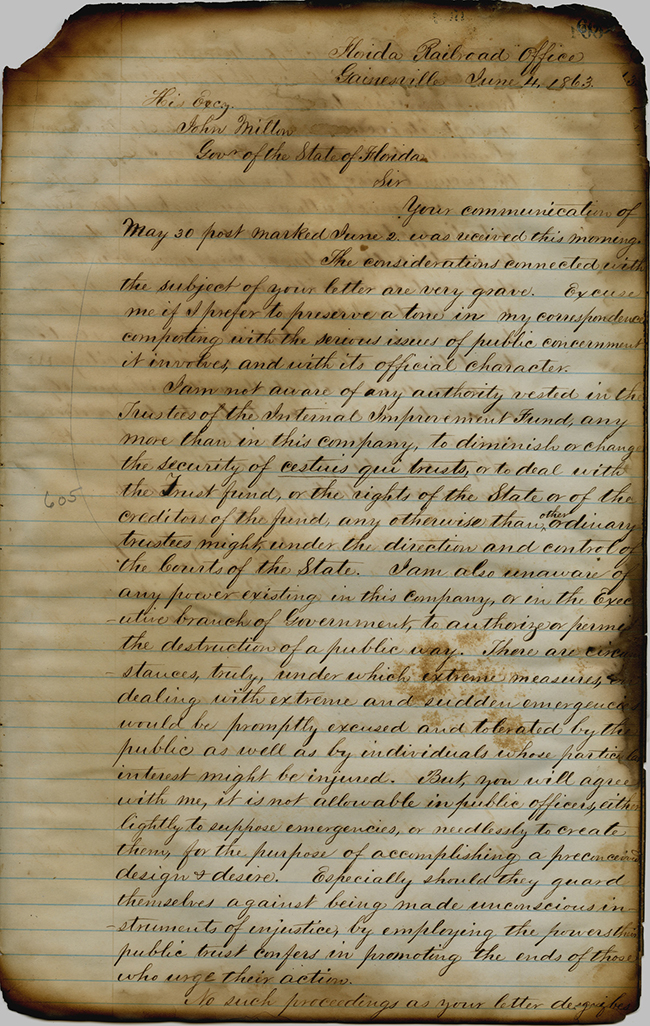 Florida Railroad Office
Gainesville June 4, 1863.
His Excy.
John Milton
Govr of the State of Florida
Sir
Your communication of
May 30 post marked June 2. was received this morning.
The considerations connected with
the subject of your letter are very grave. Excuse
me if I prefer to preserve a tone in my correspondence
comporting with the serious issues of public concernment
it involves, and with its official character.
I am not aware of any authority vested in the
Trustees of the Internal Improvement Fund, any
more than in this company, to diminish or change
the security of cestuis qui trusts, or to deal with
the Trust fund, or the rights of the State or of the
605
creditors of the fund, any otherwise than other ordinary
trustees might, under the direction and control of
the Courts of the State. I am also unaware of
any power existing in this company, or in the Exec
-utive branch of Government, to authorize or permit
the destruction of a public way. There are circum
-stances, truly, under which extreme measures, in
dealing with extreme and sudden emergencies
would be promptly excused and tolerated by the
public as well as by individuals whose particular
interest might be injured. But, you will agree
with me, it is not allowable in public officers, either
lightly to suppose emergencies, or needlessly to create
them, for the purpose of accomplishing a preconceived
design & desire. Especially should they guard
themselves against being made unconscious in-
-struments of injustice, by employing the powers their
public trust confers in promoting the ends of those
who urge their action.
No such proceedings as your letter